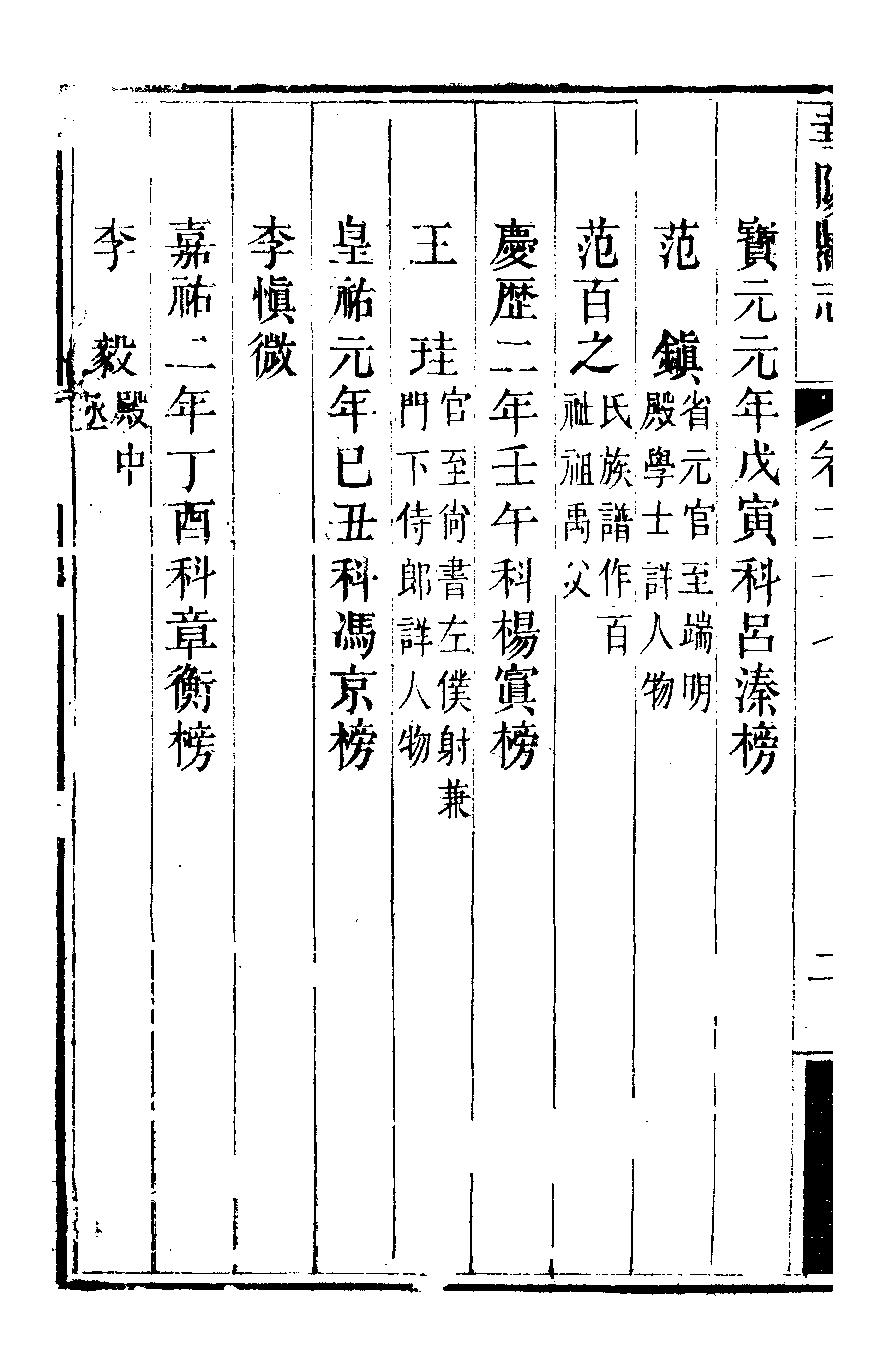 華陽縣志 卷二十八 二
寶元元年戊寅科呂溱榜
范 鎮 省元官至端明殿學士詳人物
范百之 氏族譜作百祉祖禹父
慶歴二年壬午科楊寘榜
王 珪 官至尙書左僕射兼門下侍郎詳人物
皇祐元年已丑科馮京榜
李慎微
嘉祐二年丁酉科章衡榜
李 毅 殿中丞